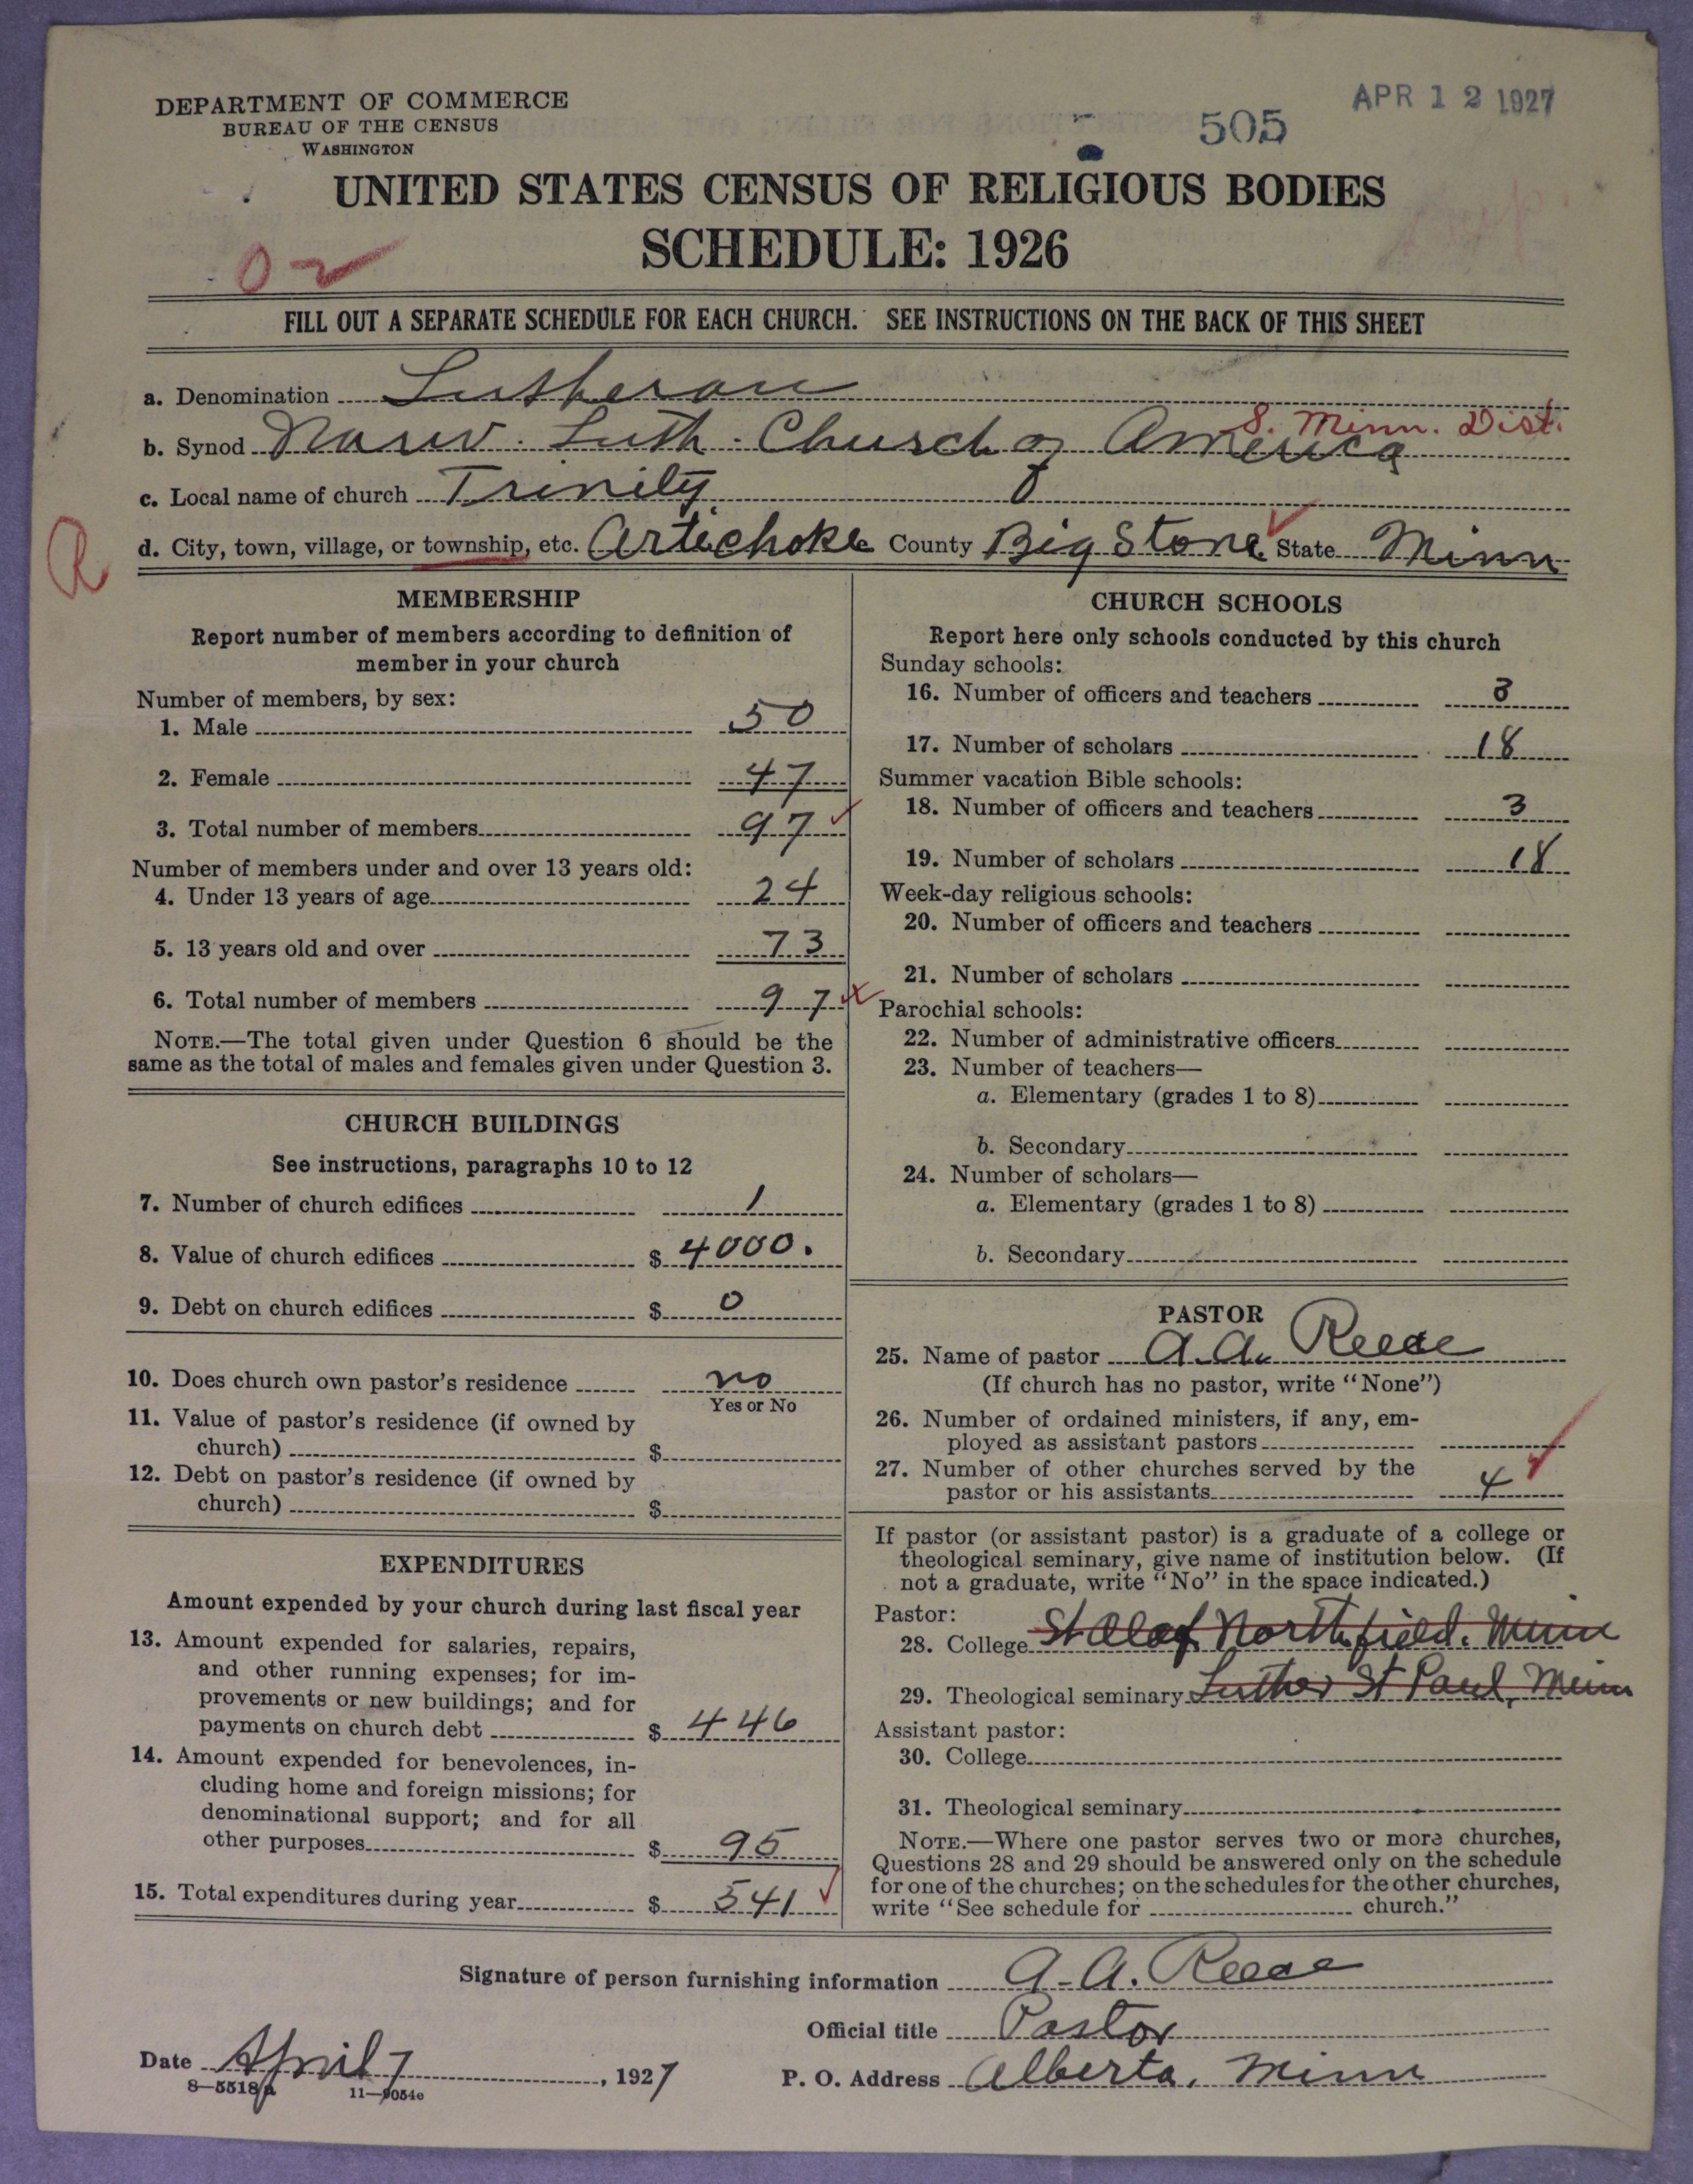 DEPARTMENT OF COMMERCE
BUREAU OF THE CENSUS
WASHINGTON
505
APR 12 1927
UNITED STATES CENSUS OF RELIGIOUS BODIES
SCHEDULE: 1926
FILL OUT A SEPARATE SCHEDULE FOR EACH CHURCH. SEE INSTRUCTIONS ON THE BACK OF THIS SHEET
a. Denomination Lutheran
S. Minn. Dist.
b. Synod Norw. Luth. Church of America
c. Local name of church Trinity
R
d. City, town, village, or township, etc. Artichoke County Big Stone State Minn
MEMBERSHIP
Report number of members according to definition of
member in your church
Number of members, by sex:
1. Male 50
2. Female 47
3. Total number of members 97
Number of members under and over 13 years old:
4. Under 13 years of age 24
5. 13 years old and over 73
6. Total number of members 97
NOTE.—The total given under Question 6 should be the
same as the total of males and females given under Question 3.
CHURCH BUILDINGS
See instructions, paragraphs 10 to 12
7. Number of church edifices 1
8. Value of church edifices $ 4000.
9. Debt on church edifices $ 0
10. Does church own pastor's residence no
Yes or No
11. Value of pastor's residence (if owned by
church) $
12. Debt on pastor's residence (if owned by
church) $
EXPENDITURES
Amount expended by your church during last fiscal year
13. Amount expended for salaries, repairs,
and other running expenses; for im-
provements or new buildings; and for
payments on church debt $ 446
14. Amount expended for benevolences, in-
cluding home and foreign missions; for
denominational support; and for all
other purposes $ 95
15. Total expenditures during year $ 541
CHURCH SCHOOLS
Report here only schools conducted by this church
Sunday schools:
16. Number of officers and teachers 3
17. Number of scholars 18
Summer vacation Bible schools:
18. Number of officers and teachers 3
19. Number of scholars 18
Week-day religious schools:
20. Number of officers and teachers
21. Number of scholars
Parochial schools:
22. Number of administrative officers
23. Number of teachers—
a. Elementary (grades 1 to 8)
b. Secondary
24. Number of scholars—
a. Elementary (grades 1 to 8)
b. Secondary
PASTOR
25. Name of pastor A. A. Reece
(If church has no pastor, write "None")
26. Number of ordained ministers, if any, em-
ployed as assistant pastors
27. Number of other churches served by the
pastor or his assistants 4
If pastor (or assistant pastor) is a graduate of a college or
theological seminary, give name of institution below. (If
not a graduate, write "No" in the space indicated.)
Pastor:
28. College St Olaf Northfield. Minn
29. Theological seminary Luther St Paul, Minn
Assistant pastor:
30. College
31. Theological seminary
NOTE.—Where one pastor serves two or more churches,
Questions 28 and 29 should be answered only on the schedule
for one of the churches; on the schedules for the other churches,
write "See schedule for church."
Signature of person furnishing information A. A. Reece
Official title Pastor
Date April 7, 1927
P. O. Address Alberta, Minn
8—5518a 11—9054c